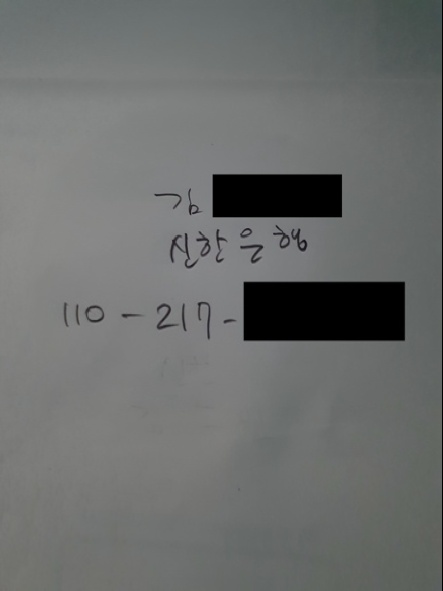 김
신한은행
110 - 217 -